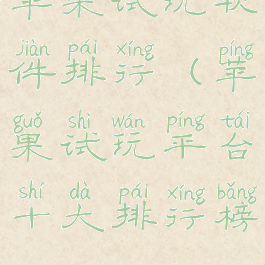 苹果试玩软
jiàn pái xíng píng
件排行(苹
guǒ shì wán píng tái
果试玩平台
shí dà pái xíng bǎng
十大排行榜